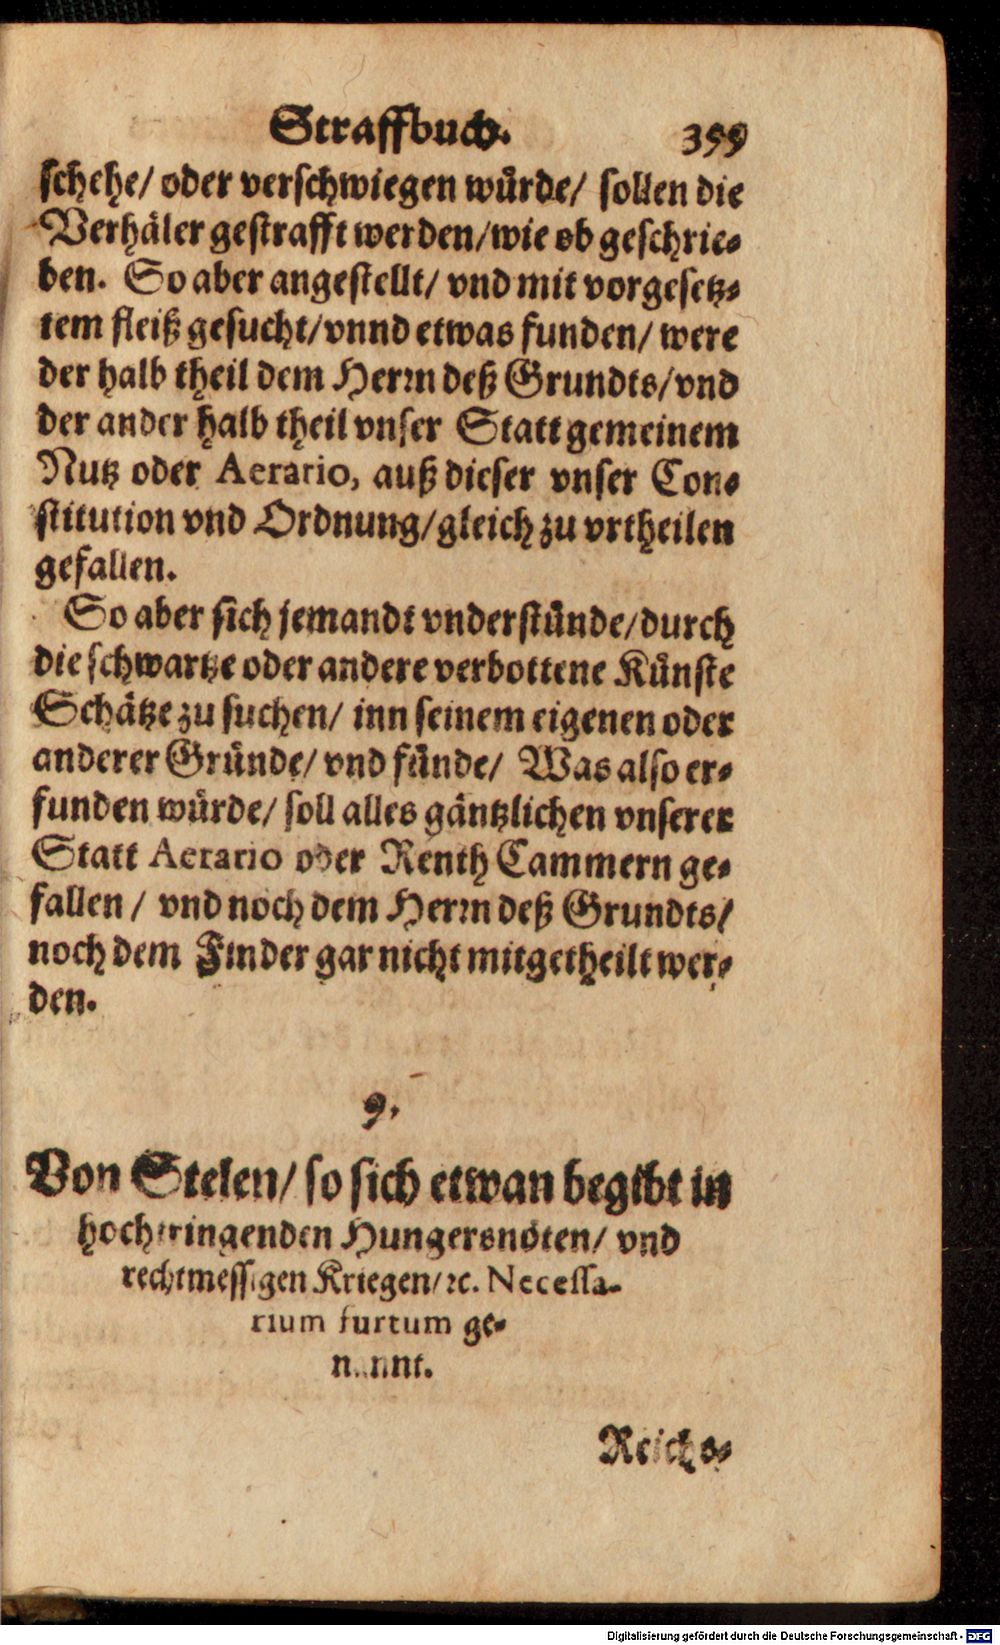 Straffbuch. 399
schehe/ oder verschwiegen würde/ sollen die
Verhäler gestrafft werden/wie ob geschrie-
ben. So aber angestellt/ vnd mit vorgesetz-
tem fleiß gesucht/vnnd etwas funden/ were
der halb theil dem Herrn deß Grundts/vnd
der ander halb theil vnser Statt gemeinem
Nutz oder Aerario, auß dieser vnser Con-
stitution vnd Ordnung/gleich zu vrtheilen
gefallen.
So aber sich jemandt vnderstünde/durch
die schwartze oder andere verbottene Künste
Schätze zu suchen/ inn seinem eigenen oder
anderer Gründe/ vnd fünde/ Was also er-
funden würde/ soll alles gäntzlichen vnserer
Statt Aerario oder Renth Cammern ge-
fallen/ vnd noch dem Herrn deß Grundts/
noch dem Finder gar nicht mitgetheilt wer-
den.
9.
Von Stelen/ so sich etwan begibt in
hochtringenden Hungersnöten/ vnd
rechtmessigen Kriegen/ꝛc. Necessa-
rium furtum ge-
nannt.
Reichs-
Digitalisierung gefördert durch die Deutsche Forschungsgemeinschaft - DFG